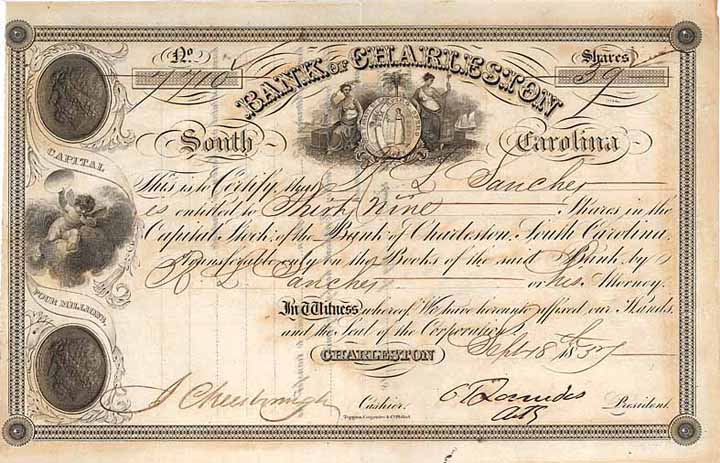 No. Shares
39
BANK OF CHARLESTON
South Carolina
This is to Certify that L Sanches
is entitled to Thirty Nine Shares in the
Capital Stock of the Bank of Charleston, South Carolina,
Transferable only on the Books of the said Bank by
L Sanches or his Attorney.
In Witness whereof We have hereunto affixed our Hands,
and the Seal of the Corporation
CHARLESTON Sept 18th 1837
J Cheesborough Cashier. President.
Toppan, Carpenter & Co. Philada.
CAPITAL
FOUR MILLIONS.